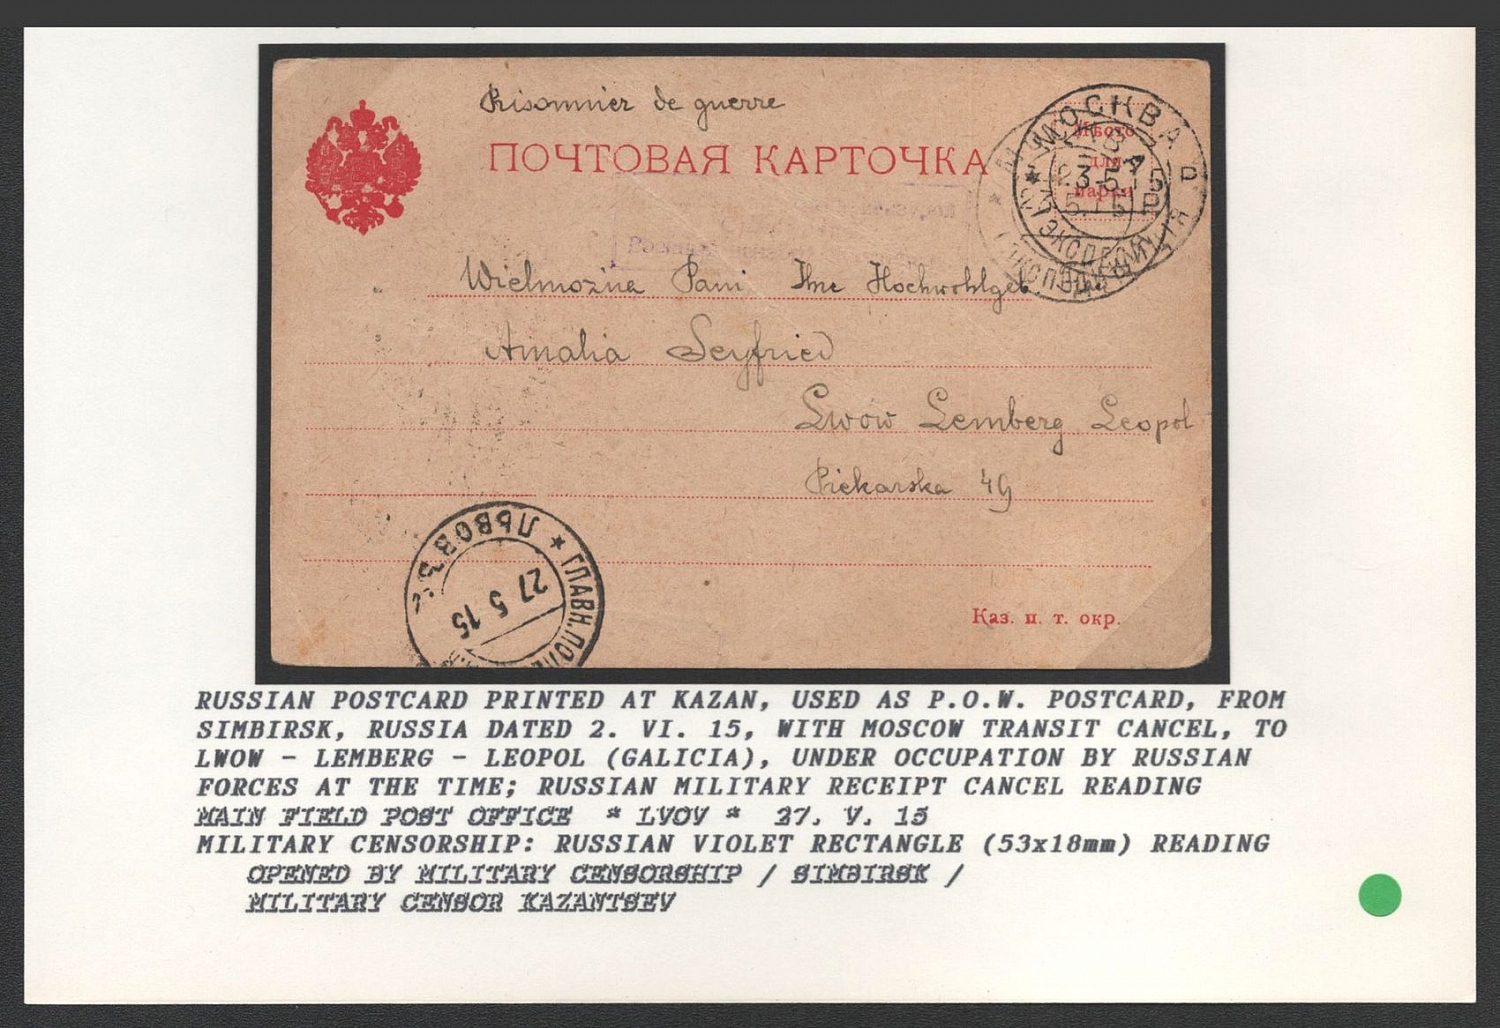 Prisonnier de guerre
ПОЧТОВАЯ КАРТОЧКА
Мѣсто
для
марки
МОСКВА
23.5.15
ЭКСПЕД
Wielmożna Pani Ihre Hochwohlgeb
Amalia Seyfried
Lwów Lemberg Leopol
Piekarska 49
ЛЬВОВЪ
ГЛАВН. ПОЛЕ
27 5 15
Каз. п. т. окр.
RUSSIAN POSTCARD PRINTED AT KAZAN, USED AS P.O.W. POSTCARD, FROM
SIMBIRSK, RUSSIA DATED 2. VI. 15, WITH MOSCOW TRANSIT CANCEL, TO
LWOW - LEMBERG - LEOPOL (GALICIA), UNDER OCCUPATION BY RUSSIAN
FORCES AT THE TIME; RUSSIAN MILITARY RECEIPT CANCEL READING
MAIN FIELD POST OFFICE * LVOV * 27. V. 15
MILITARY CENSORSHIP: RUSSIAN VIOLET RECTANGLE (53x18mm) READING
OPENED BY MILITARY CENSORSHIP / SIMBIRSK /
MILITARY CENSOR KAZANTSEV